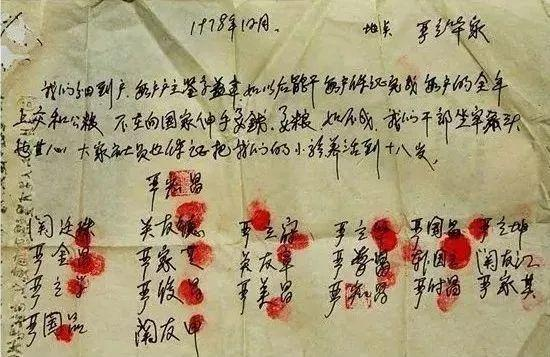 1978年12月。 地点 严立华家
我们分田到户，每户户主签字盖章，如以后能干，每户保证完成每户的全年
上交和公粮。不在向国家伸手要钱要粮。如不成，我们干部坐牢杀头
也甘心，大家社员也保证把我们的小孩养活到十八岁。
严宏昌
关廷珠 关友德 严立富 严立华 严国昌 严立坤
严金昌 严家芝 关友章 严学昌 韩国云 关友江
严立学 严俊昌 严美昌 严宏昌 严付昌 严家其
严国品 关友申